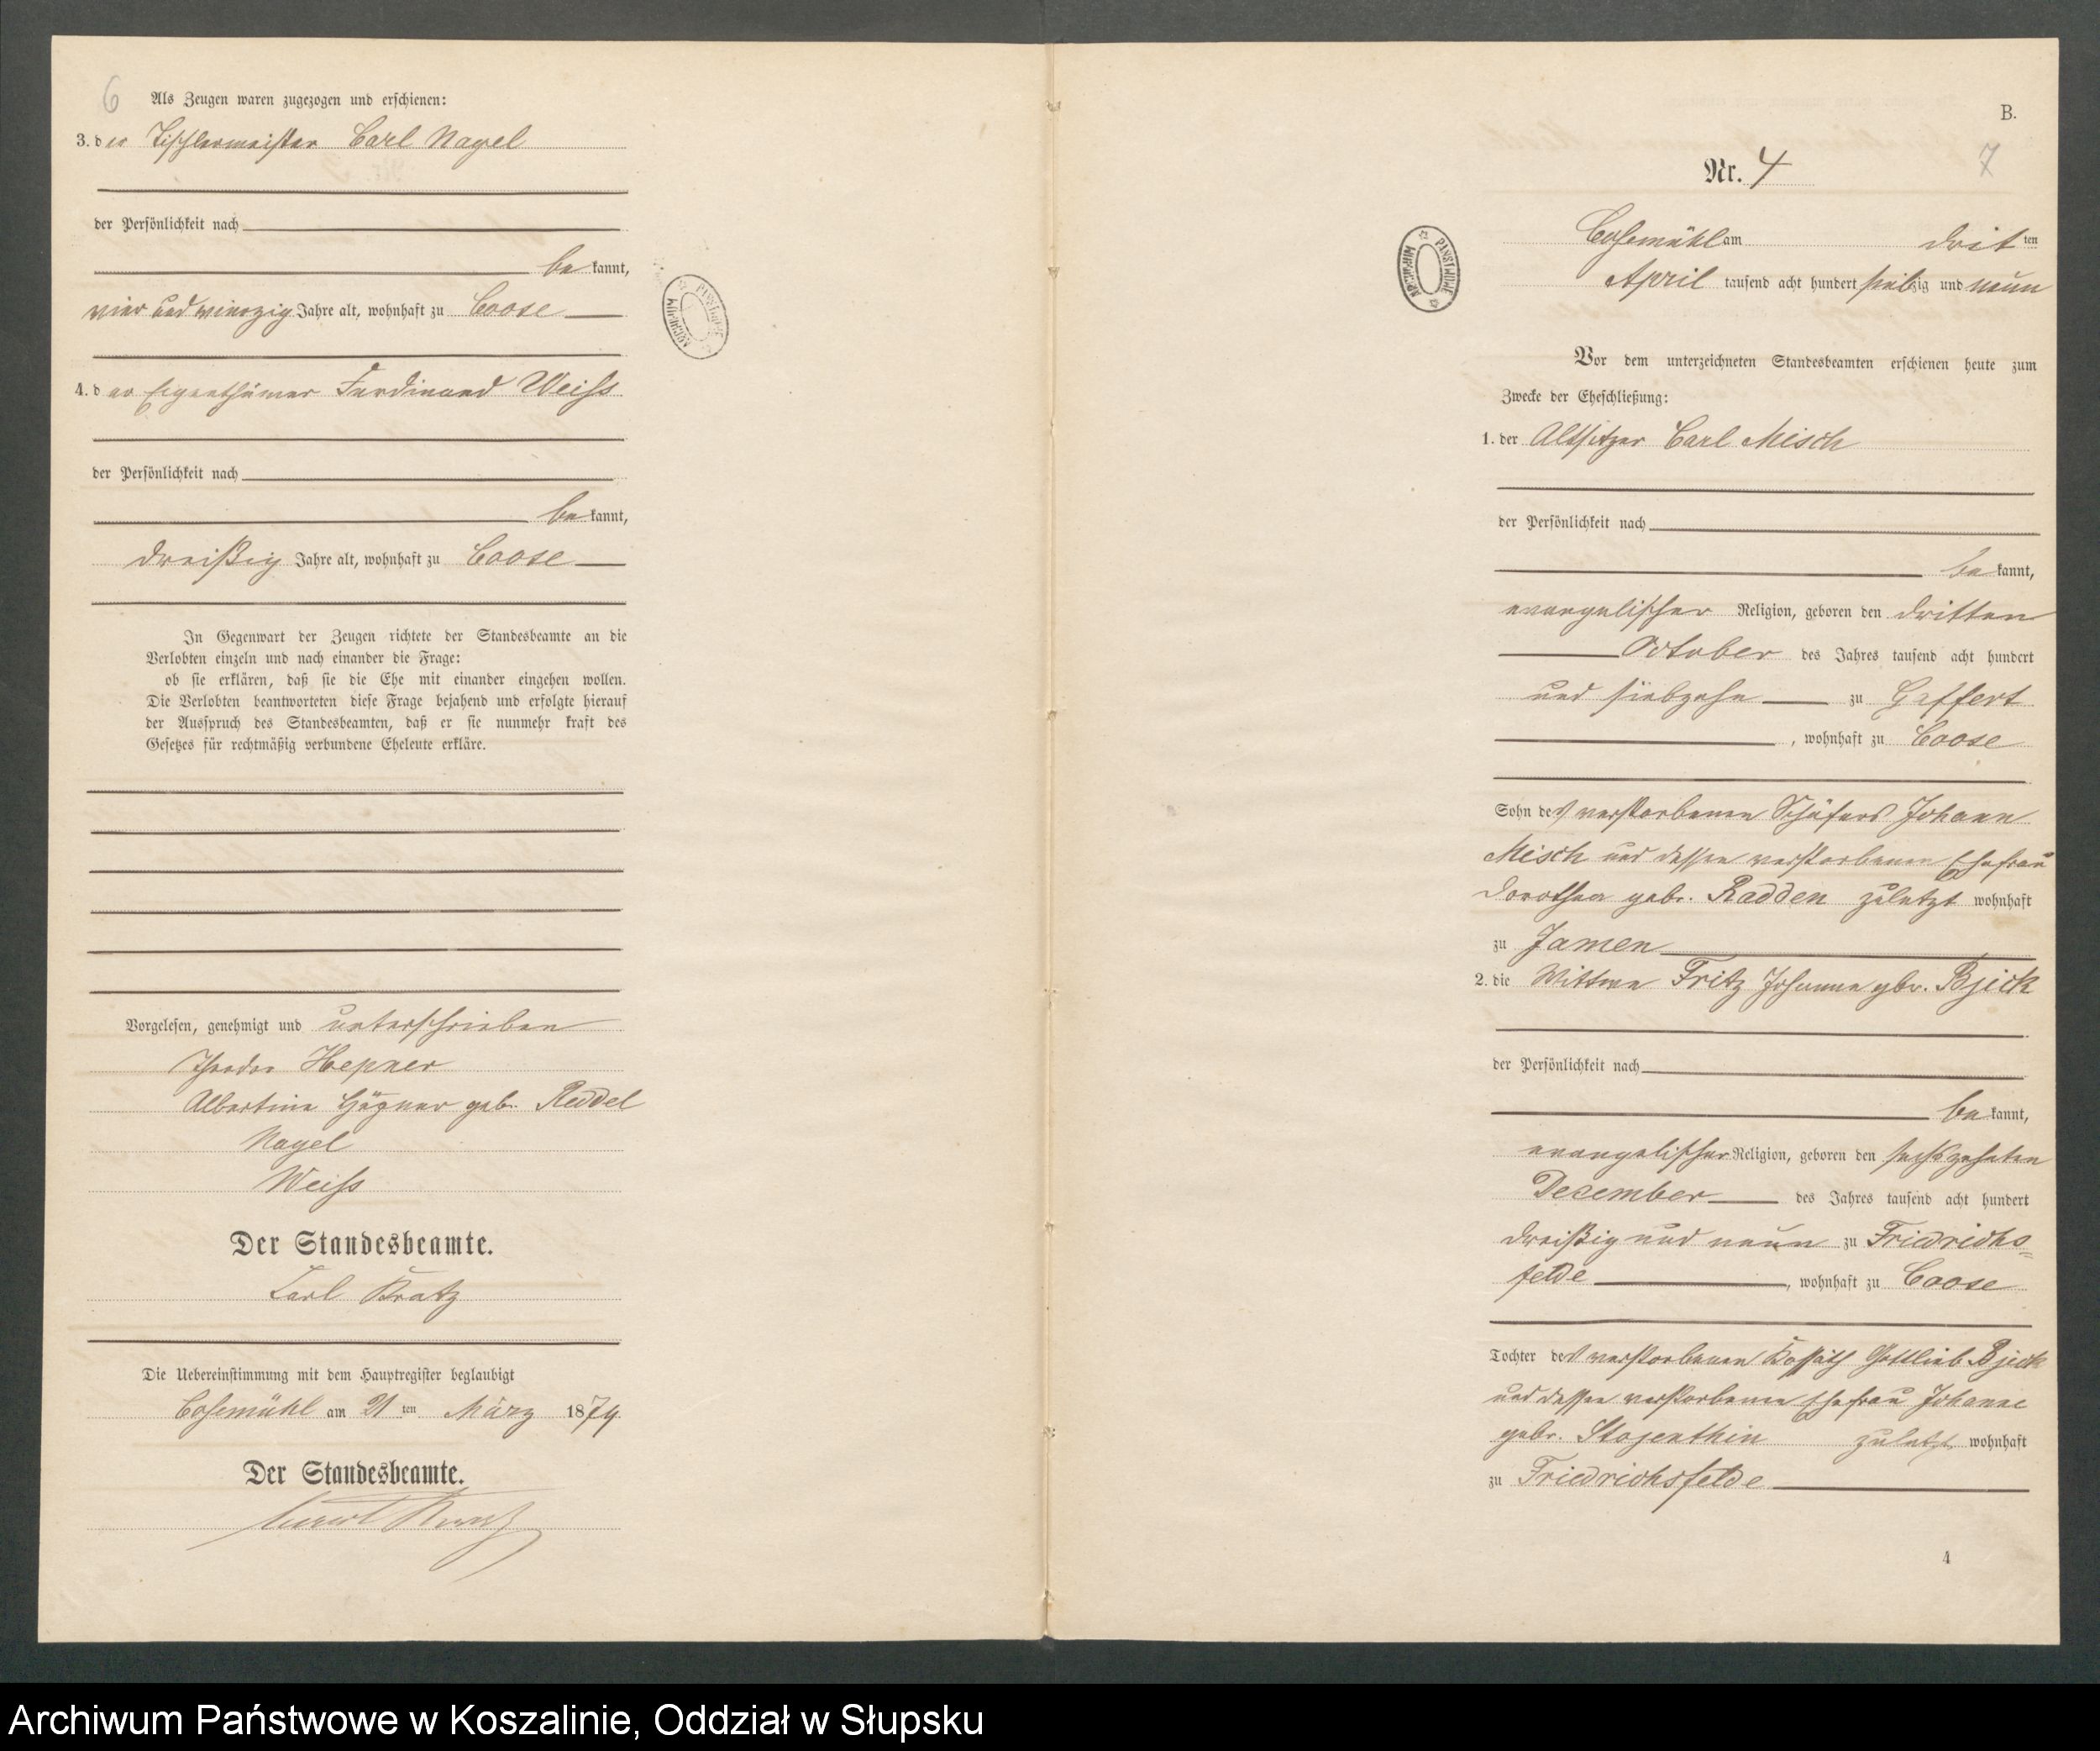 6
Als Zeugen waren zugezogen und erschienen:
3. der Tischlermeister Carl Nagel
der Persönlichkeit nach
bekannt,
vier und vierzig Jahre alt, wohnhaft zu Coose
4. der Eigenthümer Ferdinand Weiss
der Persönlichkeit nach
bekannt,
dreißig Jahre alt, wohnhaft zu Coose
In Gegenwart der Zeugen richtete der Standesbeamte an die
Verlobten einzeln und nach einander die Frage:
ob sie erklären, daß sie die Ehe mit einander eingehen wollen.
Die Verlobten beantworteten diese Frage bejahend und erfolgte hierauf
der Ausspruch des Standesbeamten, daß er sie nunmehr kraft des
Gesetzes für rechtmäßig verbundene Eheleute erkläre.
Vorgelesen, genehmigt und unterschrieben
Theodor Hepner
Albertine geb. Reddel
Nagel
Weiss
Der Standesbeamte.
Carl Kratz
Die Uebereinstimmung mit dem Hauptregister beglaubigt
Cosemühl am 21 ten März 1879
Der Standesbeamte.
ARCHIWUM PAŃSTWOWE
B.
7
Nr. 4
Cosemühl am dritten
April tausend acht hundert siebzig und neun
Vor dem unterzeichneten Standesbeamten erschienen heute zum
Zwecke der Eheschließung:
1. der Altsitzer Carl Misch
der Persönlichkeit nach
bekannt,
evangelischer Religion, geboren den dritten
October des Jahres tausend acht hundert
und siebzehn zu Gaffert
, wohnhaft zu Coose
Sohn des verstorbenen Schäfers Johann
Misch und dessen verstorbenen Ehefrau
Dorothea geb. Radden zuletzt wohnhaft
zu Jamen
2. die Wittwe Fritz Johanne gbr. Bjick
der Persönlichkeit nach
bekannt,
evangelischer Religion, geboren den sechszehnten
December des Jahres tausend acht hundert
dreißig und neun zu Friedrichs=
felde, wohnhaft zu Coose
Tochter des verstorbenen Kossäth Gottlieb Bjick
und dessen verstorbenen Ehefrau Johanne
gebr. Stojenthin zuletzt wohnhaft
zu Friedrichsfelde
4
ARCHIWUM PAŃSTWOWE
Archiwum Państwowe w Koszalinie, Oddział w Słupsku